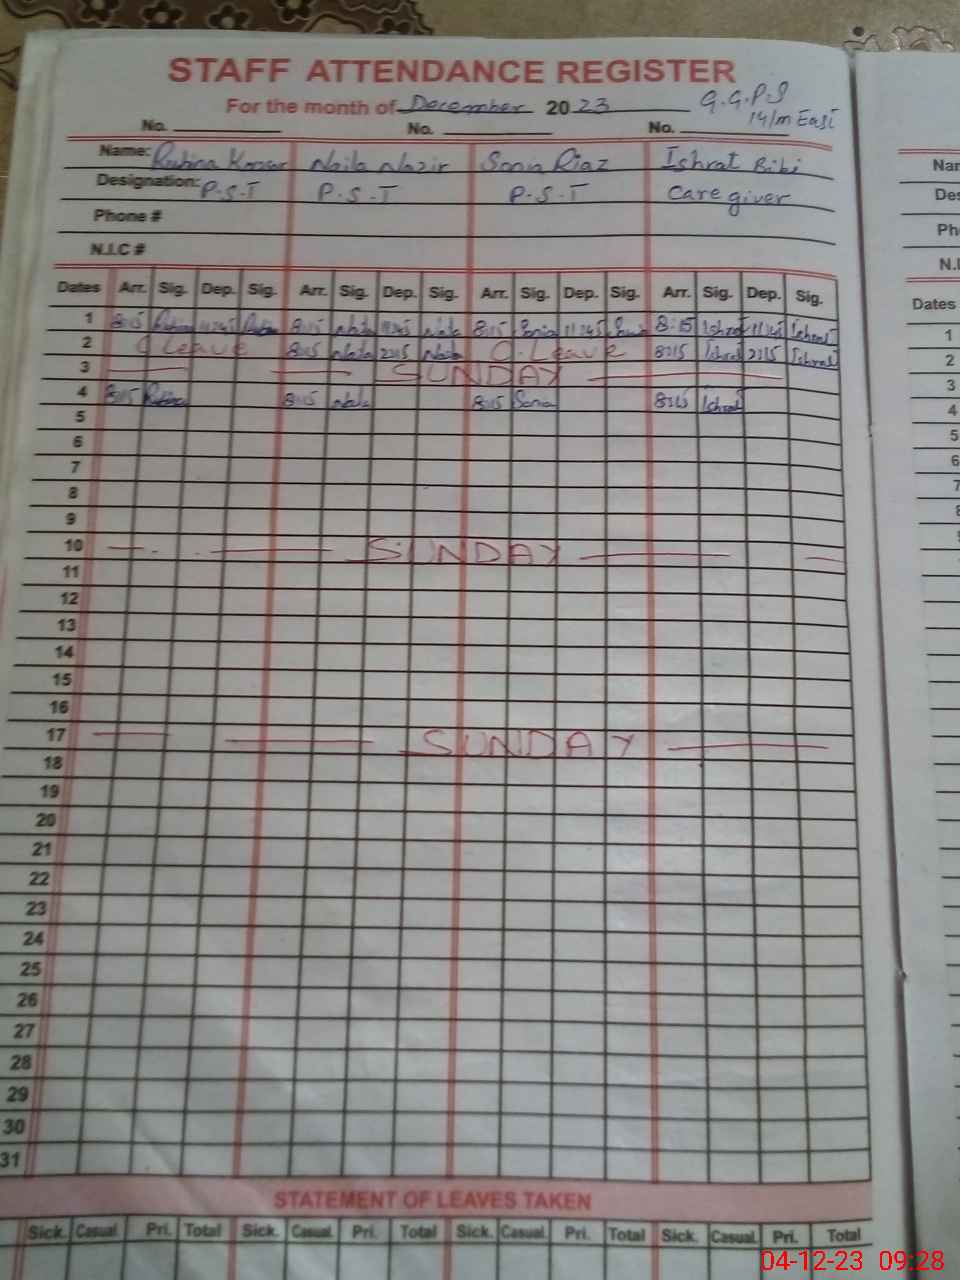 STAFF ATTENDANCE REGISTER
For the month of December 2023 G.G.P.S
14/m East
No. No. No.
Name: Rubina Kousar Naila Nazir Sonia Riaz Ishrat Bibi
Designation: P.S.T P.S.T P.S.T Care giver
Phone #
N.I.C #
Dates Arr. Sig. Dep. Sig. Arr. Sig. Dep. Sig. Arr. Sig. Dep. Sig. Arr. Sig. Dep. Sig.
1 8:15 Rubina 11:45 Rubina 8:15 Naila 11:45 Naila 8:15 Sonia 11:45 Sonia 8:15 Ishrat 11:45 Ishrat
2 C Leave 8:15 Naila 2:15 Naila C. Leave 8:15 Ishrat 2:15 Ishrat
3 SUNDAY
4 8:15 Rubina 8:15 Naila 8:15 Sonia 8:15 Ishrat
5
6
7
8
9
10 SUNDAY
11
12
13
14
15
16
17 SUNDAY
18
19
20
21
22
23
24
25
26
27
28
29
30
31
STATEMENT OF LEAVES TAKEN
Sick. Casual. Pri. Total Sick. Casual. Pri. Total Sick. Casual. Pri. Total Sick. Casual. Pri. Total
04-12-23 09:28
Dates
1
2
3
4
5
6
7